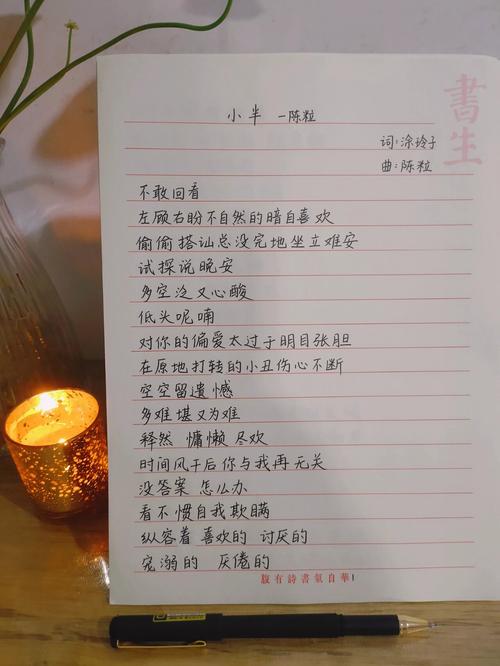 書生
小半 —陈粒
词:涂玲子
曲:陈粒
不敢回看
左顾右盼不自然的暗自喜欢
偷偷搭讪总没完地坐立难安
试探说晚安
多空泛又心酸
低头呢喃
对你的偏爱太过于明目张胆
在原地打转的小丑伤心不断
空空留遗憾
多难堪又为难
释然 慵懒 尽欢
时间风干后你与我再无关
没答案 怎么办
看不惯自我欺瞒
纵容着 喜欢的 讨厌的
宠溺的 厌倦的
版有詩書氣自華